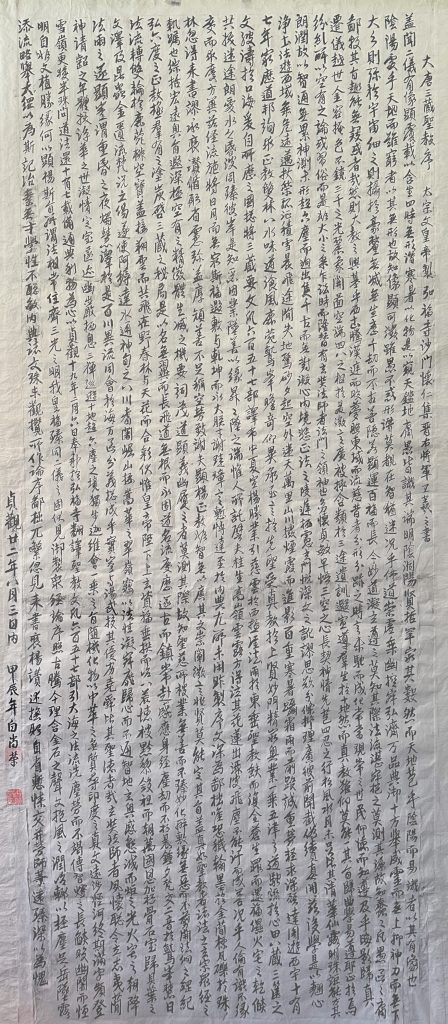 大唐三藏聖教序 太宗文皇帝製 弘福寺沙門懷仁集晉右將軍王羲之書
蓋聞二儀有像顯覆載以含生四時無形潛寒暑以化物是以窺天鑑地庸愚皆識其端明陰洞陽賢哲罕窮其數然而天地苞乎陰陽而易識者以其有像也
陰陽處乎天地而難窮者以其無形也故知像顯可徵雖愚不惑形潛莫覩在智猶迷況乎佛道崇虛乘幽控寂弘濟萬品典御十方舉威靈而無上抑神力而無下
大之則彌於宇宙細之則攝於毫釐無滅無生歷千劫而不古若隱若顯運百福而長今妙道凝玄遵之莫知其際法流湛寂挹之莫測其源故知蠢蠢凡愚區區庸
鄙投其旨趣能無疑惑者哉然則大教之興基乎西土騰漢庭而皎夢照東域而流慈昔者分形分跡之時言未馳而成化當常現常之世民仰德而知遵及乎晦影歸真
遷儀越世金容掩色不鏡三千之光麗象開圖空端四八之相於是微言廣被拯含類於三途遺訓遐宣導群生於十地然而真教難仰莫能一其旨歸曲學易遵耶正於焉
紛糾所以空有之論或習俗而是非大小之乘乍沿時而隆替有玄奘法師者法門之領袖也幼懷貞敏早悟三空之心長契神情先苞四忍之行松風水月未足比其清華仙露明珠詎能方其
朗潤故以智通無累神測未形超六塵而迥出隻千古而無對凝心內境悲正法之陵遲栖慮玄門慨深文之訛謬思欲分條析理廣彼前聞截偽續真開茲後學是以翹心
淨土法遊西域乘危遠邁杖策孤征積雪晨飛途間失地驚砂夕起空外迷天萬里山川撥煙霞而進影百重寒暑躡霜雨而前蹤誠重勞輕求深願達周遊西宇十有
七年窮歷道邦詢求正教雙林八水味道湌風鹿菀鷲峰瞻奇仰異承至言於先聖受真教於上賢探賾妙門精窮奧業一乘五律之道馳驟於心田八藏三篋之
文波濤於口海爰自所歷之國總將三藏要文凡六百五十七部譯布中夏宣揚勝業引慈雲於西極注法雨於東垂聖教缺而復全蒼生罪而還福濕火宅之乾燄
共拔迷途朗愛水之昏波同臻彼岸是知惡因業墜善以緣昇昇墜之端惟人所託譬夫桂生高嶺雲露方得泫其花蓮出淥波飛塵不能汙其葉況乎人倫有識不緣
慶而求慶方冀茲經流施將日月而無窮斯福遐敷與乾坤而永大朕才謝珪璋言慙博達至於內典尤所未閑昨製序文深為鄙拙唯恐穢翰墨於金簡標瓦礫於珠
林忽得來書謬承褒讚循躬省慮彌益厚顏善不足稱空勞致謝夫顯揚正教非智無以廣其文崇闡微言非賢莫能定其旨蓋真如聖教者諸法之玄宗眾經之
軌躅也綜括宏遠奧旨遐深極空有之精微體生滅之機要詞茂道曠尋之者不究其源文顯義幽履之者莫測其際故知聖慈所被業無善而不臻妙化所敷緣無惡而不翦開法網之綱紀
弘六度之正教拯群有之塗炭啟三藏之秘扃是以名無翼而長飛道無根而永固道名流慶歷遂古而鎮常赴感應身經塵劫而不朽晨鍾夕梵交二音於鷲峰慧日
法流轉雙輪於鹿菀排空寶蓋接翔雲而共飛莊野春林與天花而合彩伏惟皇帝陛下上玄資福垂拱而治八荒德被黔黎斂衽而朝萬國恩加朽骨石室歸貝葉之
文澤及昆蟲金匱流梵說之偈遂使阿耨達水通神甸之八川耆闍崛山接嵩華之翠嶺竊以法性凝寂靡歸心而不通智地玄奧感懇誠而遂顯豈謂重昏之夜燭慧炬之光火宅之朝降
法雨之澤於是百川異流同會於海萬區分義總成乎實豈與湯武校其優劣堯舜比其聖德者哉玄奘法師者夙懷聰令立志夷簡
神清齠齔之年體拔浮華之世凝情定室匿跡幽巖栖息三禪巡遊十地超六塵之境獨步迦維會一乘之旨隨機化物以中華之無質尋印度之真文遠涉恒河終期滿字頻登
雪嶺更獲半珠問道往還十有七載備通釋典利物為心以貞觀十九年二月六日奉勅於弘福寺翻譯聖教要文凡六百五十七部引大海之法流洗塵勞而不竭傳智燈之長燄皎幽闇而恒
明自非久植勝緣何以顯揚斯旨所謂法相常住齊三光之明我皇福臻同二儀之固伏見御製眾經論序照古騰今理含金石之聲文抱風雲之潤治輒以輕塵足岳墜露
添流略舉大綱以為斯記治素無才學性不聰敏內典諸文殊未觀攬所作論序鄙拙尤繁忽見來書褒揚讚述撫躬自省慙悚交并勞師等遠臻深以為愧
貞觀廿二年八月三日內 甲辰年白尚榮